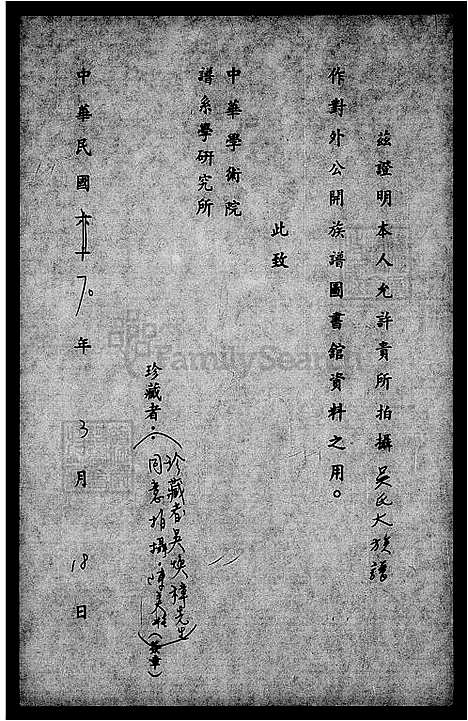 茲證明本人允許貴所拍攝吳氏大族譜
作對外公開族譜圖書館資料之用。
此致
中華學術院
譜系學研究所
珍藏者：
(珍藏者吳煥璋先生
同意拍攝．陳美桂)
(蓋章)
中華民國 70 年 3 月 18 日
FamilySearch